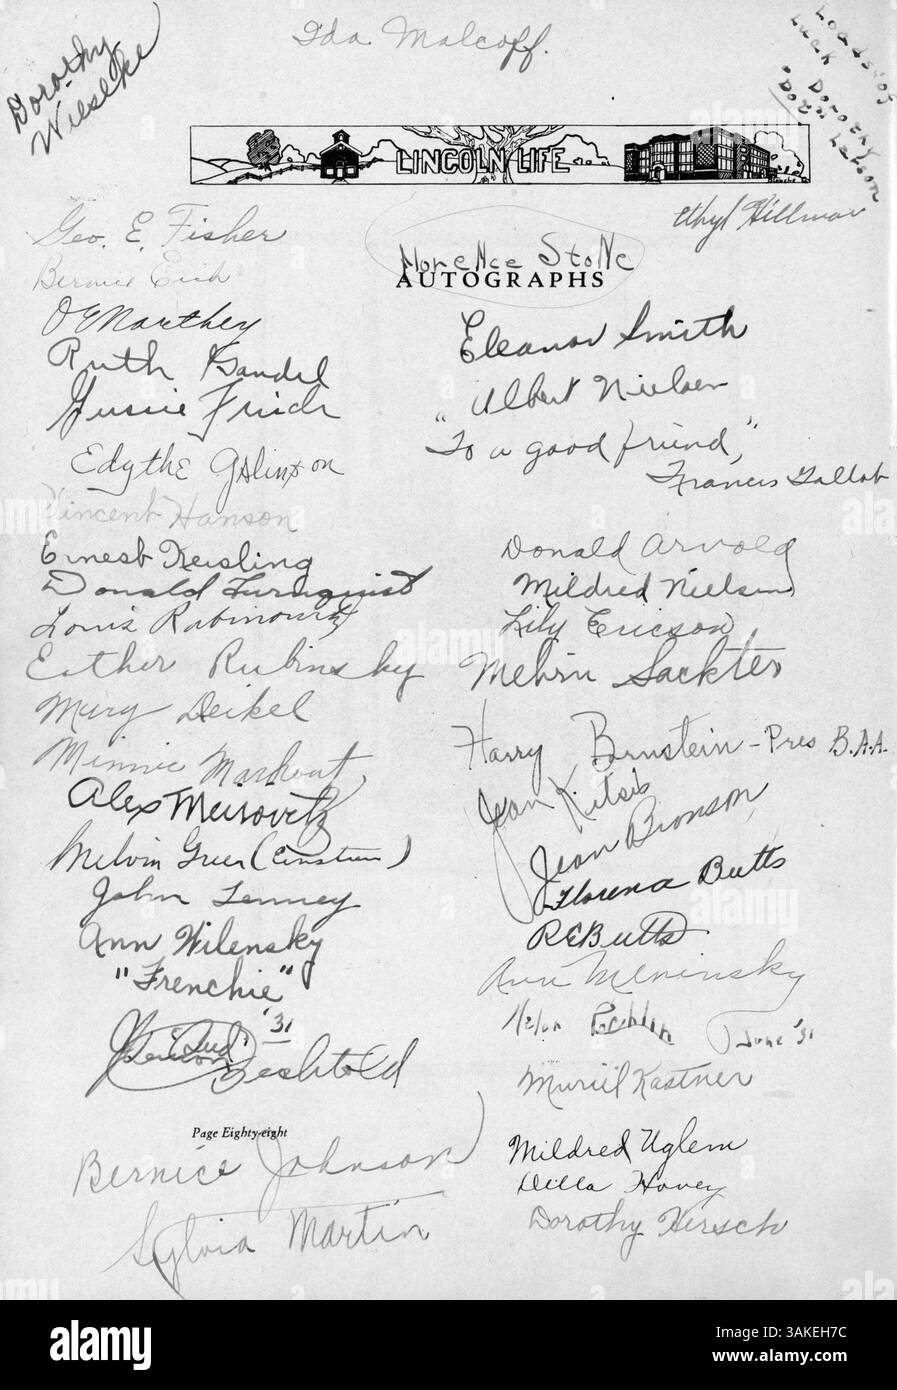 Ida Malcoff.
Dorothy
Wieseke
Loads of
Luck Dorothy
"Dot" Larson
LINCOLN LIFE
Ethyl Hillman
Florence Stone
AUTOGRAPHS
Geo. E. Fisher
Bernice
Ruth Bandel
Gussie
Edythe
Vincent Hanson
Ernest Keisling
Donald Turnquist
Louis Rabinovitz
Esther Rubinsky
Mary Deikel
Minnie
Alex Meirovitz
Melvin Greer (Einstein)
John Tenney
Ann Wilensky
"Frenchie"
'31
Bechtold
Eleanor Smith
Albert Nielsen
"To a good friend,"
Francis
Donald Arvold
Mildred Nielsen
Lily Ericson
Melvin Sackter
Harry Bernstein - Pres B.A.A.
Jean Kitsis
Jean Bronson
Florence Butts
R E Butts
Ann Meninsky
June '31
Muriel Kastner
Page Eighty-eight
Bernice Johnson
Sylvia Martin
Mildred Uglem
Della Hovey
Dorothy Hirsch
alamy
Image ID: 3AKEH7C
www.alamy.com